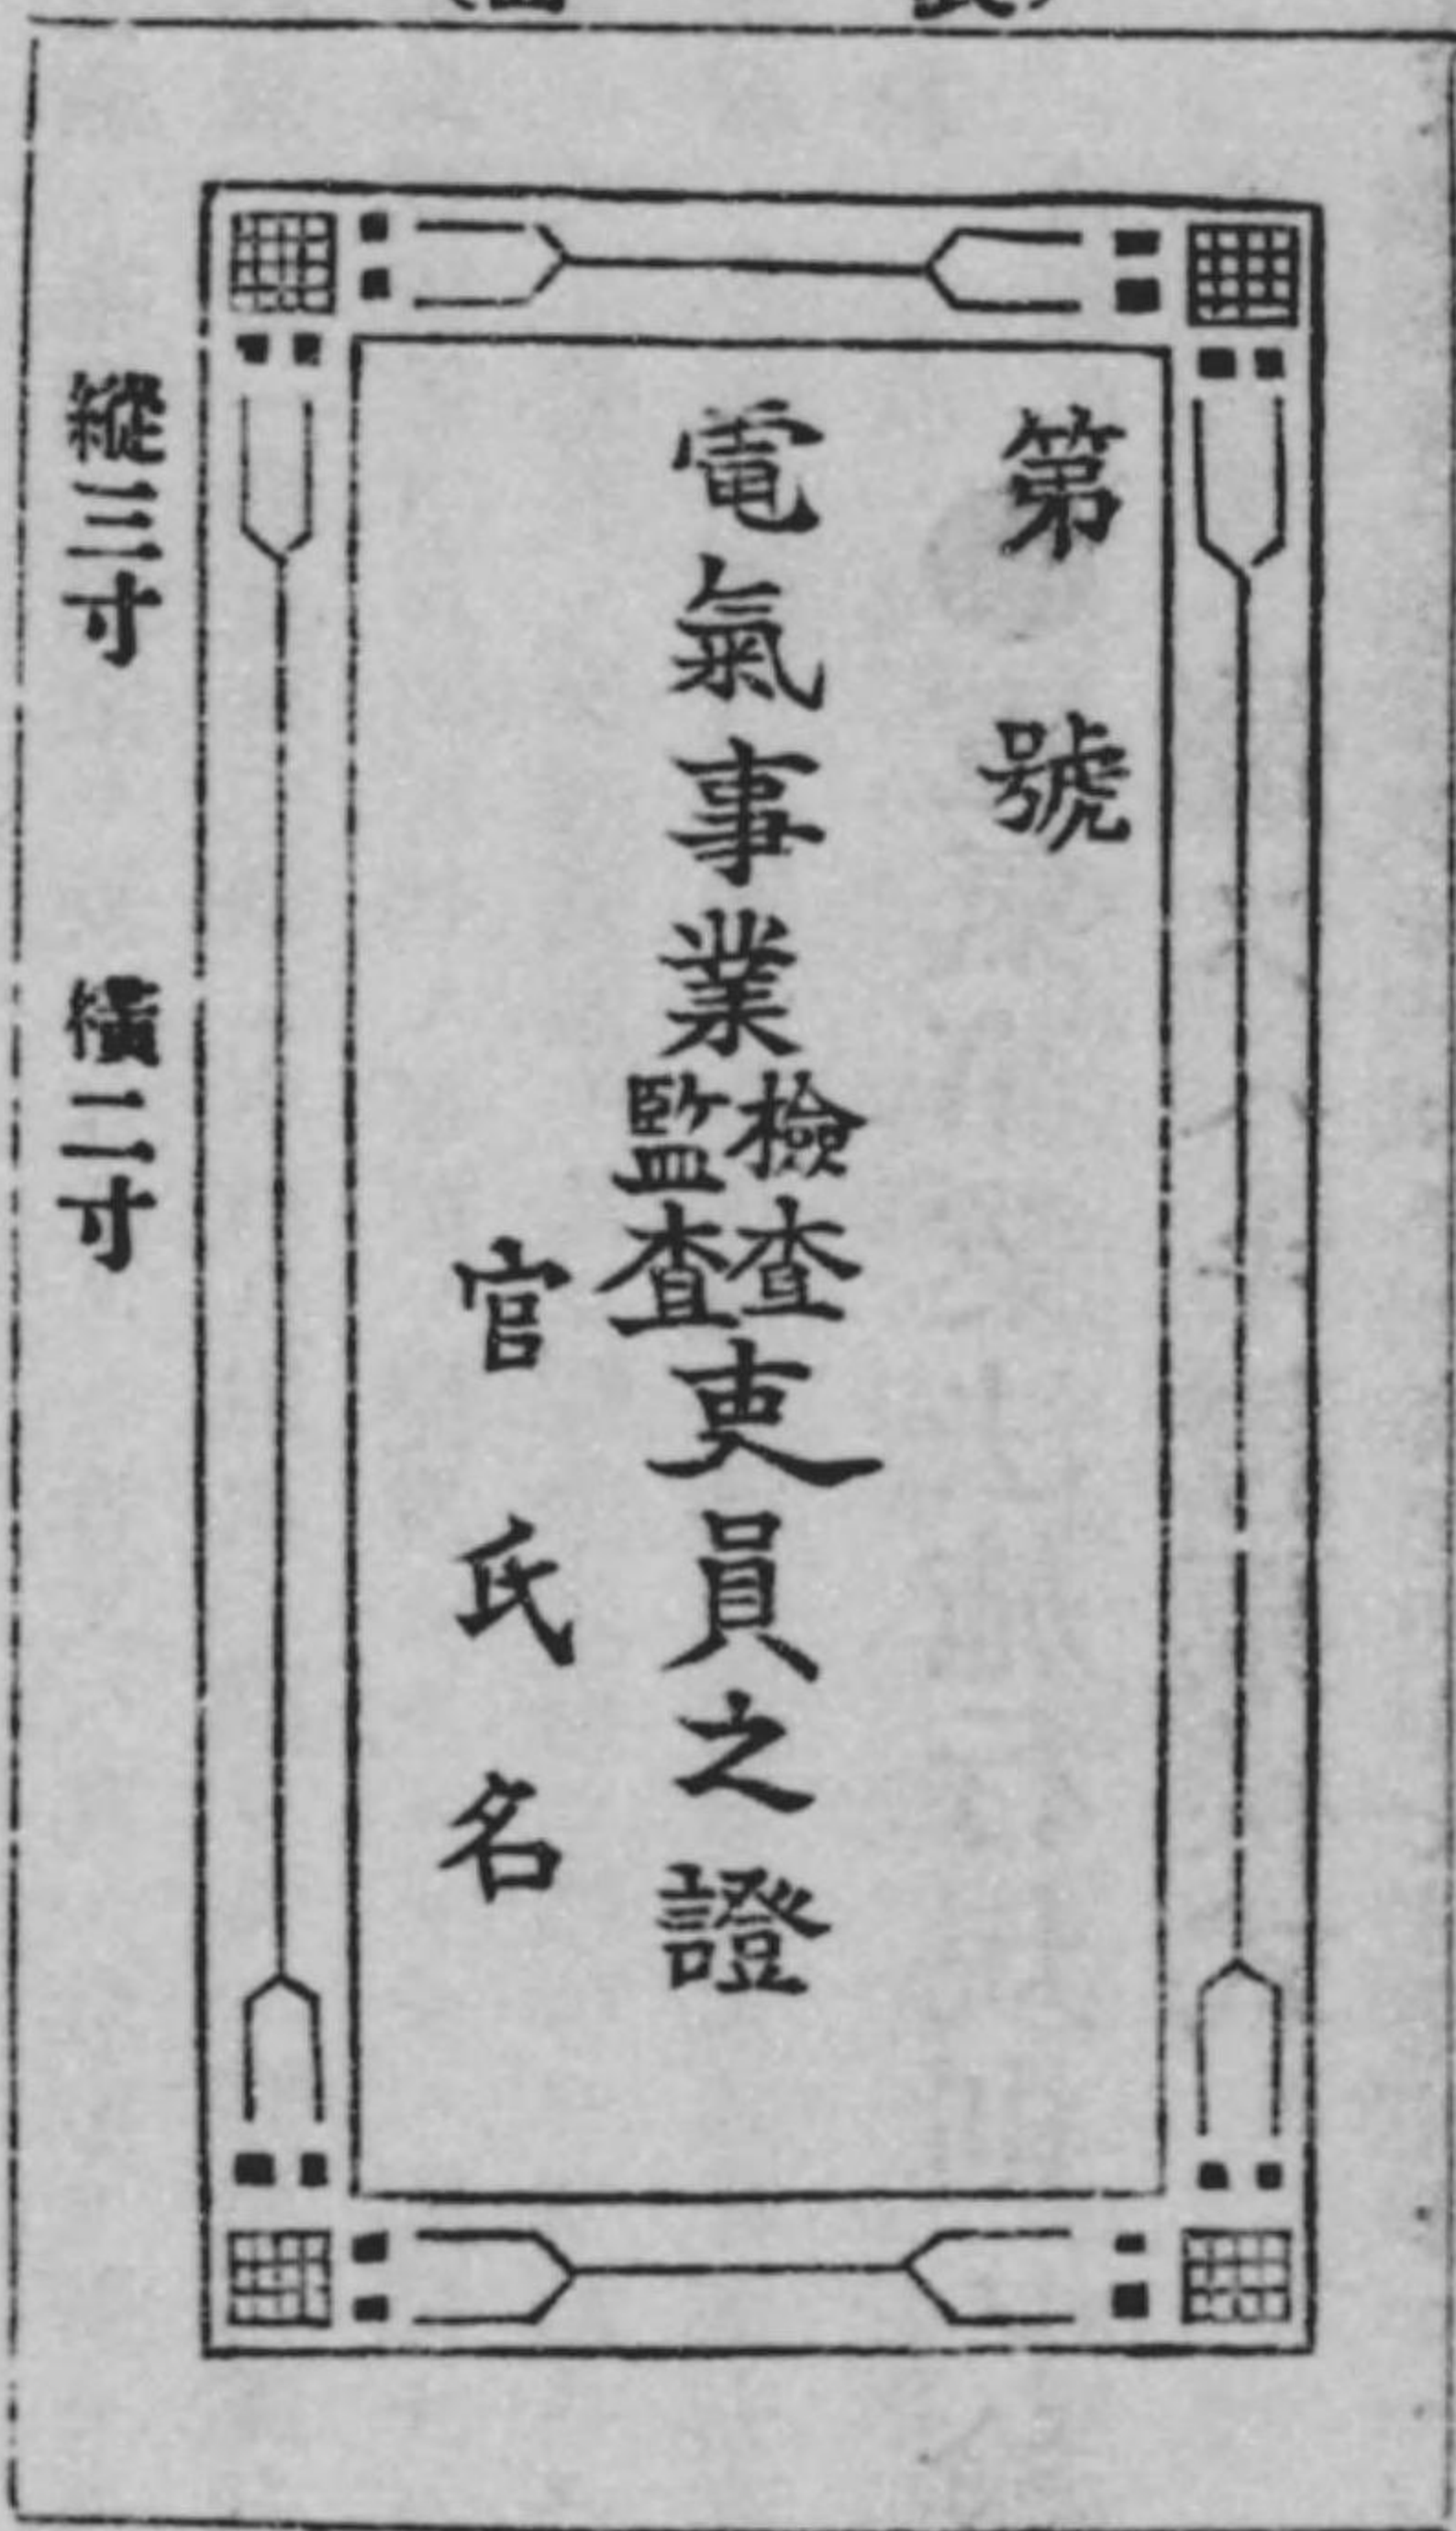 第　號
電氣事業檢查監查吏員之證
官氏名
縱三寸　橫二寸